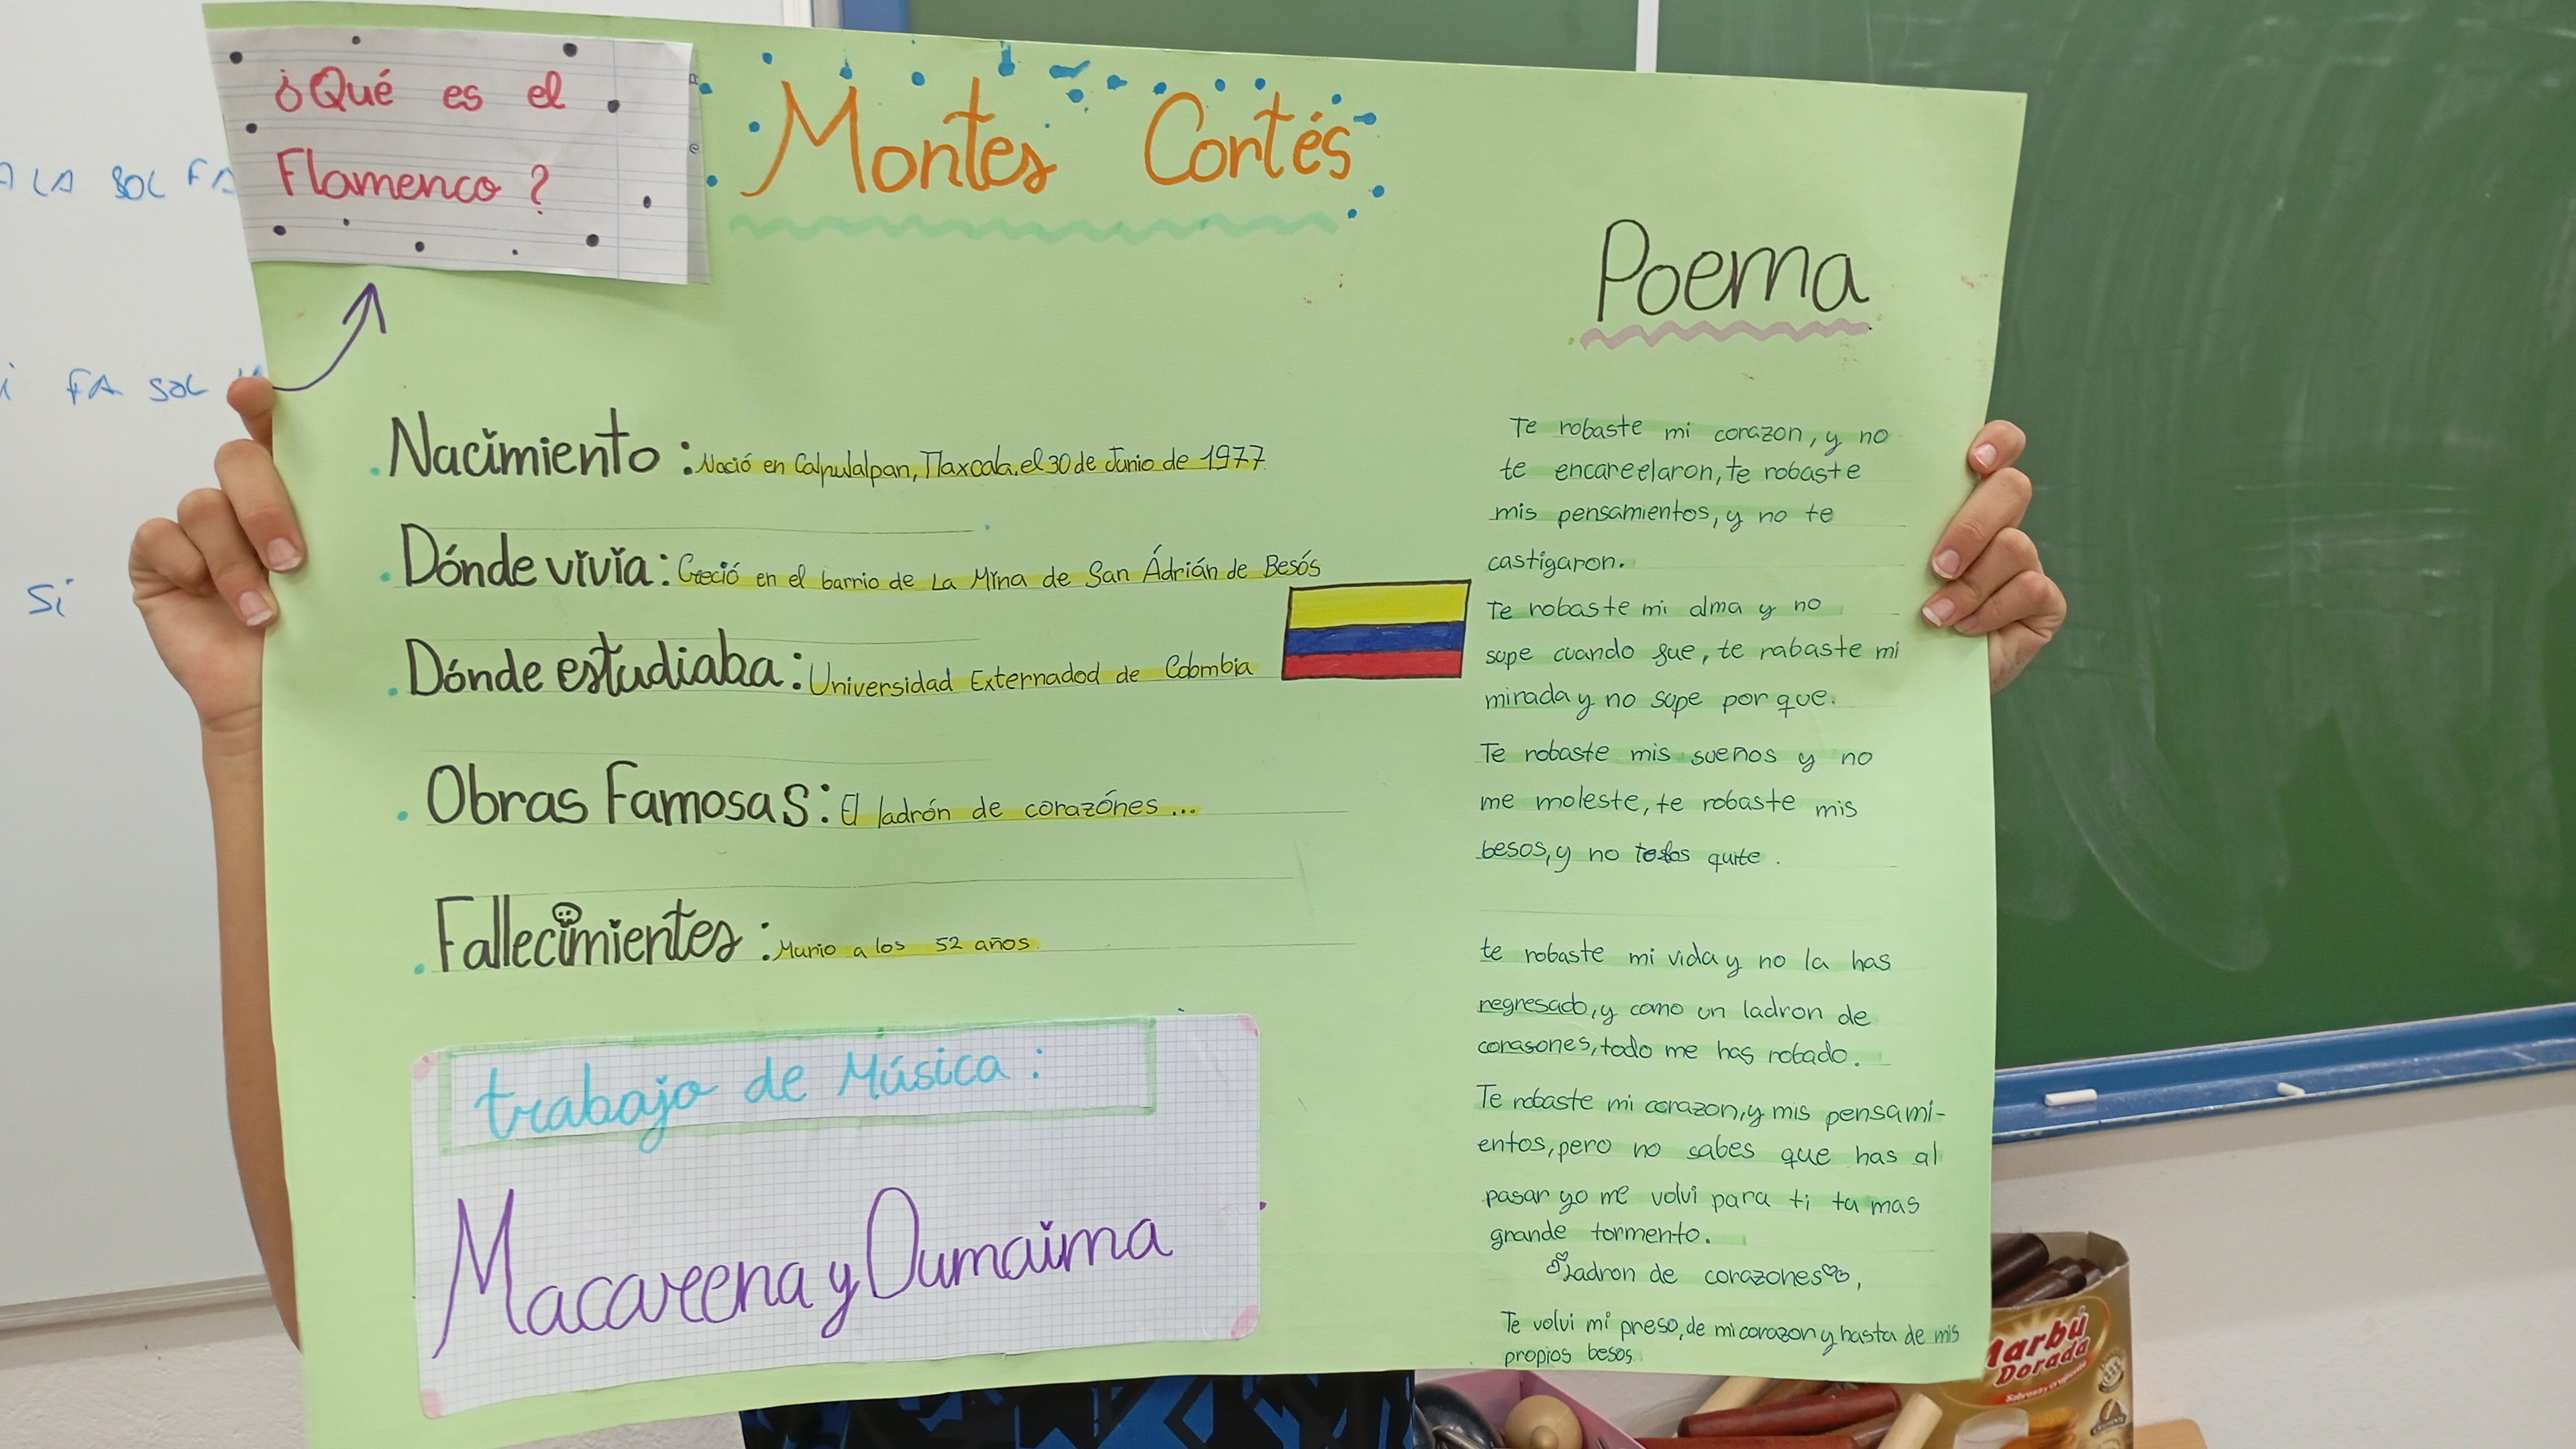 ¿Qué es el
Flamenco?
Montes Cortés
Nacimiento: Nació en Calpulalpan, Tlaxcala, el 30 de Junio de 1977
Dónde vivia: Creció en el barrio de La Mina de San Ádrián de Besós
Dónde estudiaba: Universidad Externadod de Colombia
Obras Famosas: El ladrón de corazónes ...
Fallecimientes: Murio a los 52 años.
trabajo de Música:
Macareena y Oumaima
Poema
Te robaste mi corazon, y no
te encarcelaron, te robaste
mis pensamientos, y no te
castigaron.
Te robaste mi alma y no
supe cuando fue, te rabaste mi
mirada y no supe por que.
Te robaste mis sueños y no
me moleste, te robaste mis
besos, y no quite.
te robaste mi vida y no la has
regresado, y como un ladron de
corasones, todo me has robado.
Te robaste mi corazon, y mis pensami-
entos, pero no sabes que has al
pasar yo me volvi para ti tu mas
grande tormento.
Ladron de corazones,
Te volvi mi preso, de mi corazon y hasta de mis
propios besos
A LA SOL FA
FA SOL
Si
Marbú
Dorada